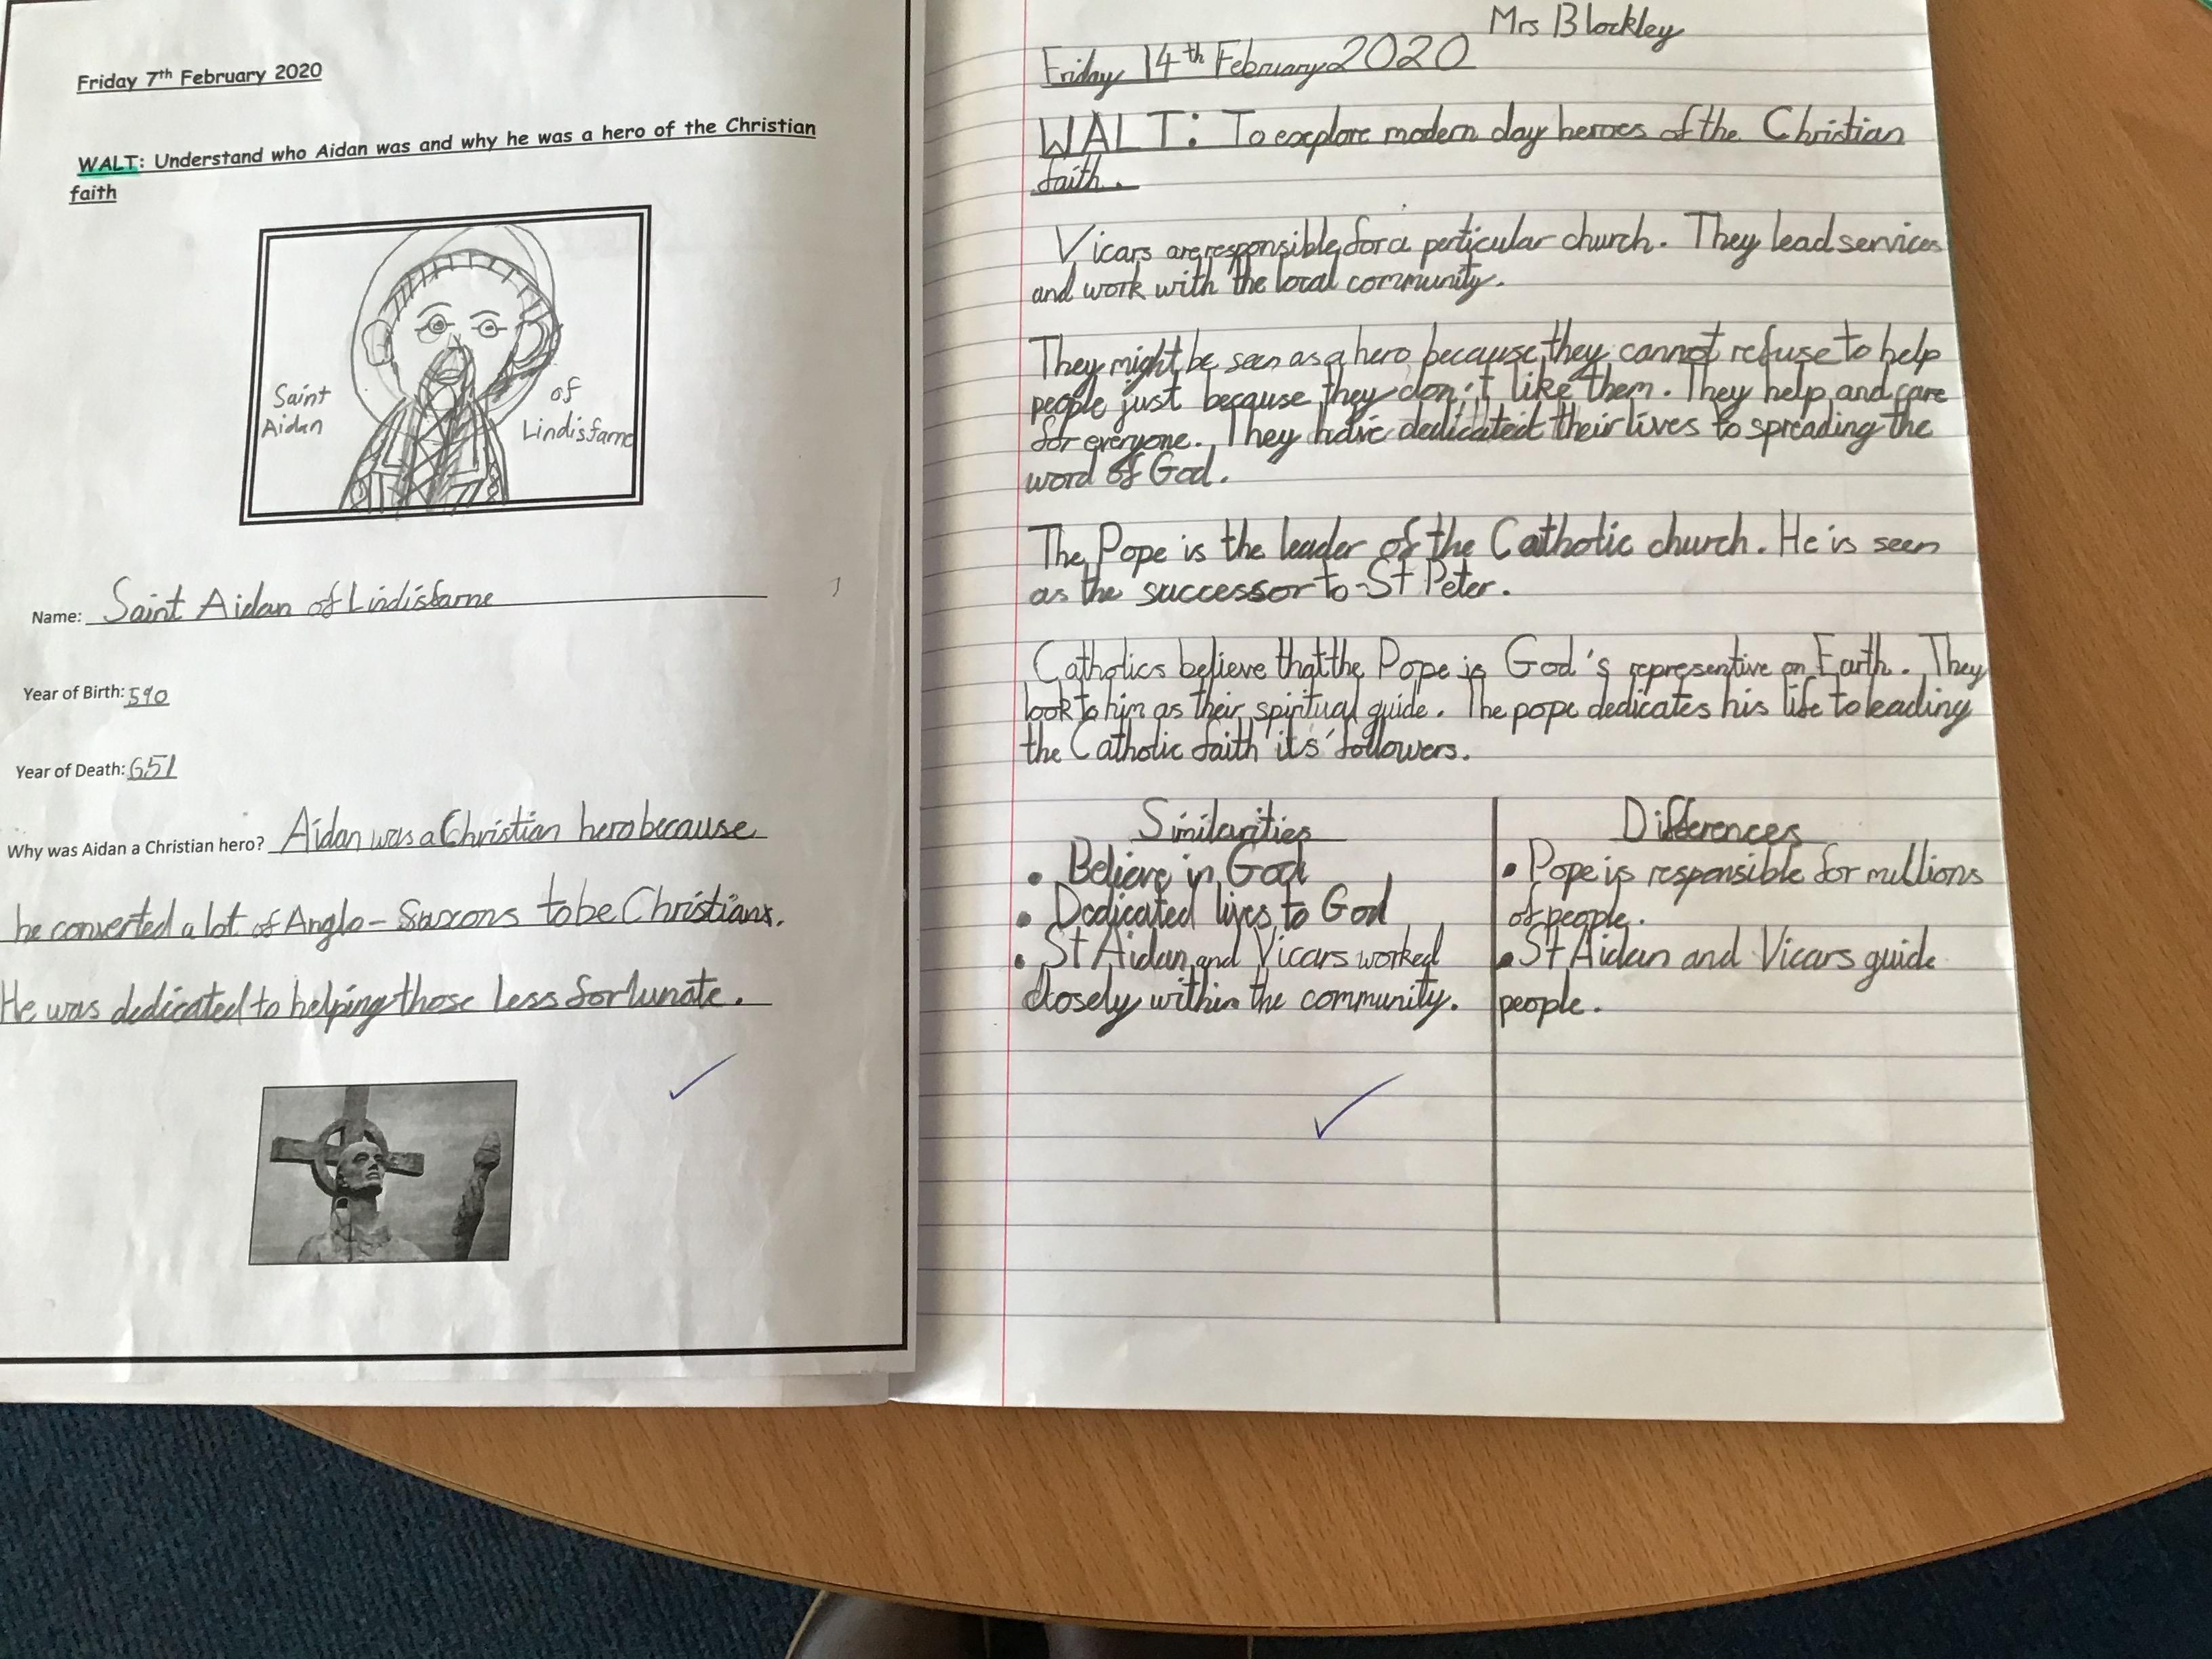 Friday 7th February 2020
WALT: Understand who Aidan was and why he was a hero of the Christian
faith
Saint
Aidan
of
Lindisfarne
Name: Saint Aidan of Lindisfarne
Year of Birth: 590
Year of Death: 651
Why was Aidan a Christian hero? Aidan was a Christian hero because
he converted a lot of Anglo-Saxons to be Christians.
He was dedicated to helping those less fortunate.
Mrs Blockley
Friday 14th February 2020
WALT: To explore modern day heroes of the Christian
faith.
Vicars are responsible for a perticular church. They lead services
and work with the local community.
They might be seen as a hero because they cannot refuse to help
people just because they don't like them. They help and care
for everyone. They have dedicated their lives to spreading the
word of God.
The Pope is the leader of the Catholic church. He is seen
as the successor to St Peter.
Catholics believe that the Pope is God's representive on Earth. They
look to him as their spiritual guide. The pope dedicates his life to leading
the Catholic faith its' followers.
Similarities
• Believe in God
• Dedicated lives to God
• St Aidan and Vicars worked
closely within the community.
Differences
• Pope is responsible for millions
of people.
• St Aidan and Vicars guide
people.